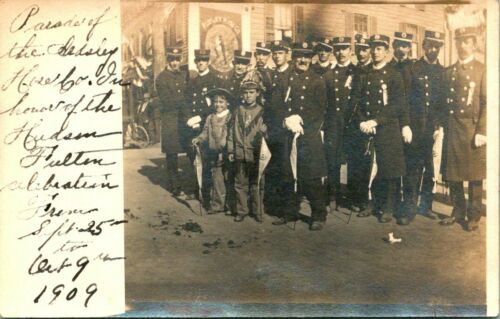 Parade of
the Selsley
Hose Co. In
honor of the
Hudson
Fulton
celebration
From
Sept 25th
to
Oct 9th
1909